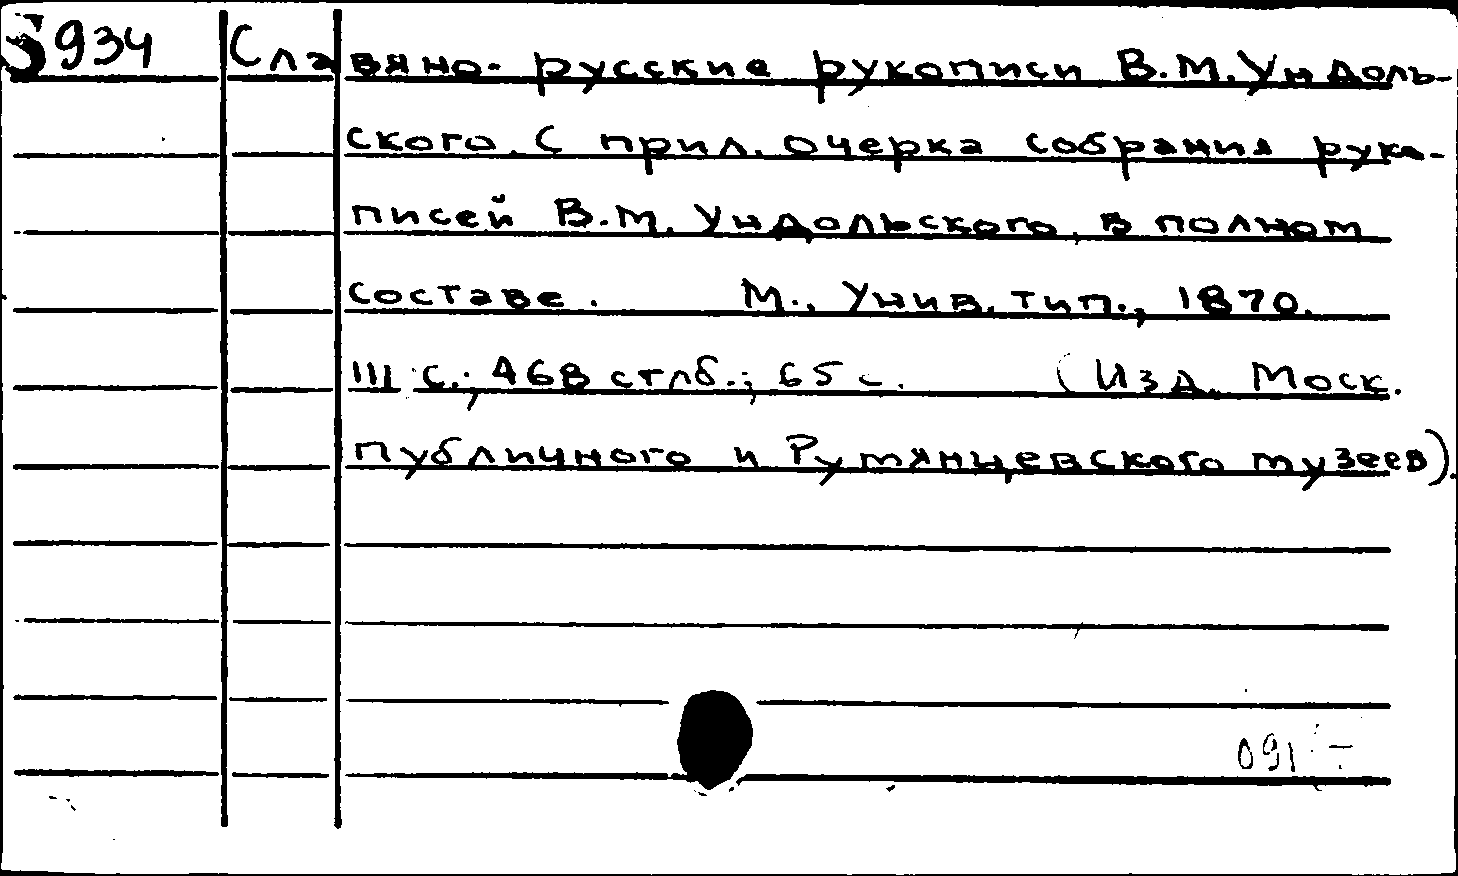 5934 Славяно-русские рукописи В.М. Ундоль-
ского. С прил. очерка собрания руко-
писей В.М. Ундольского, в полном
составе. М., Унив. тип., 1870.
III с.; 468 стлб.; 65 с. (Изд. Моск.
публичного и Румянцевского музеев).
091